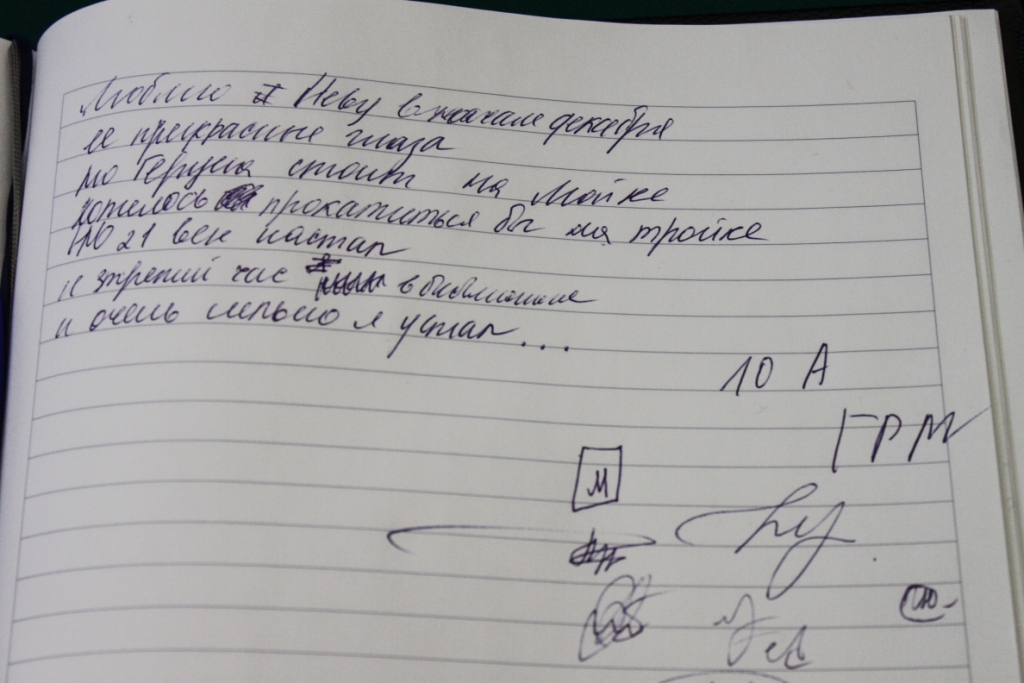 Люблю Неву в начале декабря
ее прекрасные глаза
но Геруна стоит на Мойке
хотелось прокатиться бы на тройке
НО 21 век настал
и третий час в библиотеке
и очень сильно я устал...
10 А
ГРМ
М